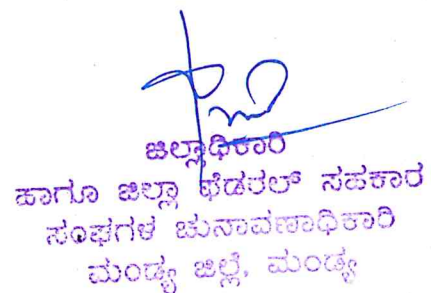 ಜಿಲ್ಲಾಧಿಕಾರಿ
ಹಾಗೂ ಜಿಲ್ಲಾ ಫೆಡರಲ್ ಸಹಕಾರ
ಸಂಘಗಳ ಚುನಾವಣಾಧಿಕಾರಿ
ಮಂಡ್ಯ ಜಿಲ್ಲೆ, ಮಂಡ್ಯ